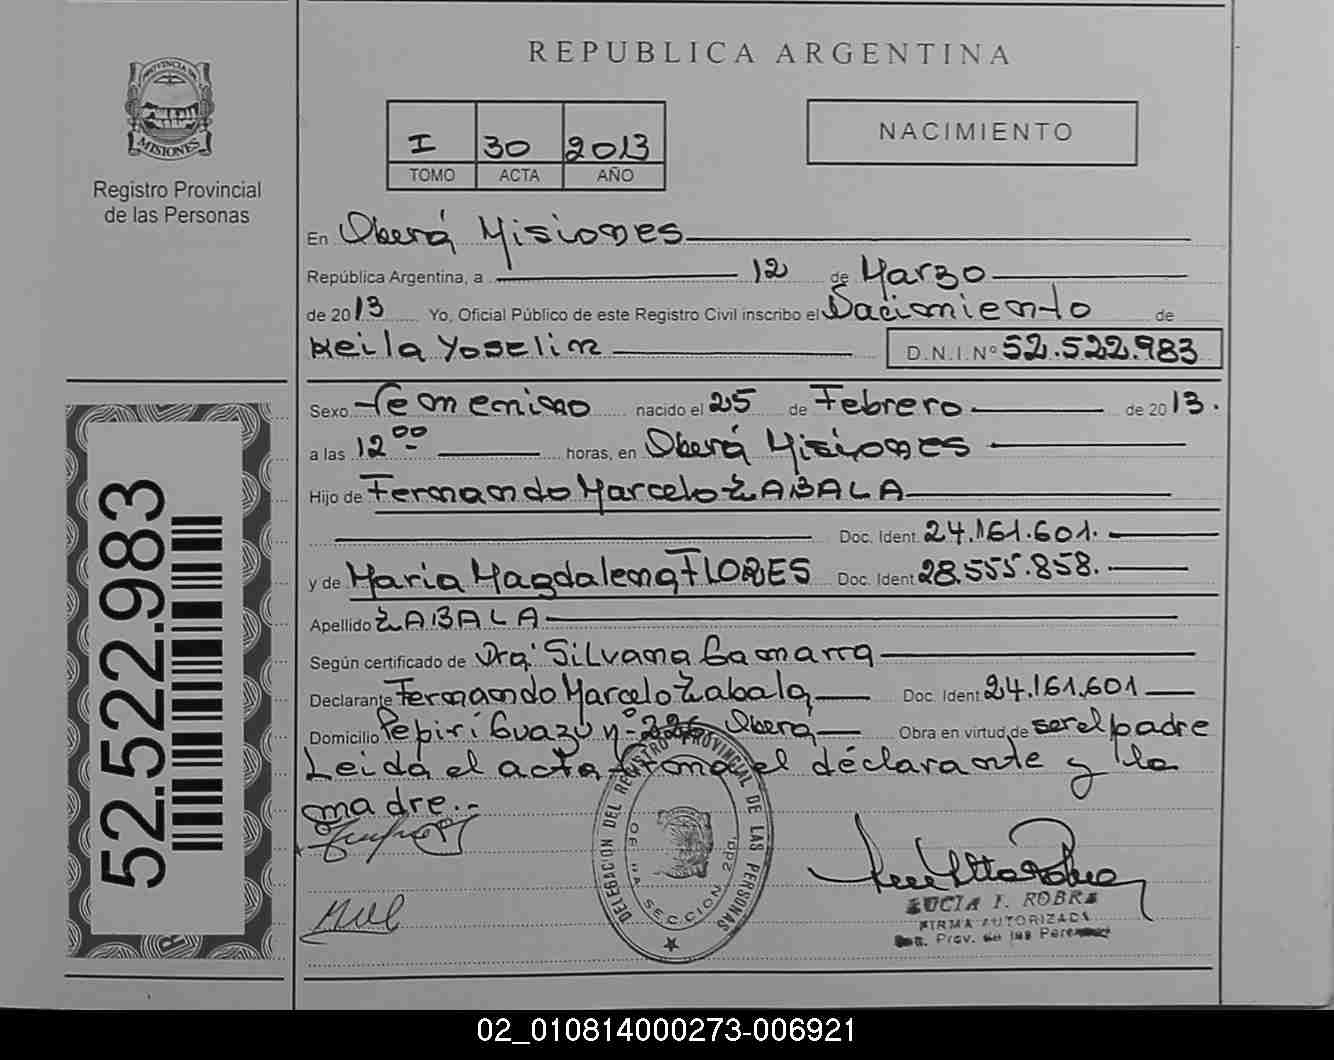 REPUBLICA ARGENTINA
PROVINCIA DE MISIONES
Registro Provincial
de las Personas
I 30 2013
TOMO ACTA AÑO
NACIMIENTO
En Oberá Misiones
República Argentina, a 12 de Marzo
de 2013 Yo, Oficial Público de este Registro Civil inscribo el Nacimiento de
Keila Yoselin D.N.I. Nº 52.522.983
Sexo Femenino nacido el 25 de Febrero de 2013.
a las 12 00 horas, en Oberá Misiones
Hijo de Fernando Marcelo ZABALA
Doc. Ident. 24.161.601.
y de Maria Magdalena FLORES Doc. Ident 28.555.858.
Apellido ZABALA
Según certificado de Dra. Silvana Gamarra
Declarante Fernando Marcelo Zabala Doc. Ident. 24.161.601
Domicilio Pepirí Guazu nº 226 Oberá Obra en virtud de ser el padre
Leida el acta firma el declarante y la
madre.-
52.522.983
DELEGACION DEL REGISTRO PROVINCIAL DE LAS PERSONAS
SECCION 2da.
LUCIA I. ROBRA
FIRMA AUTORIZADA
Prov. de las Personas
02_010814000273-006921